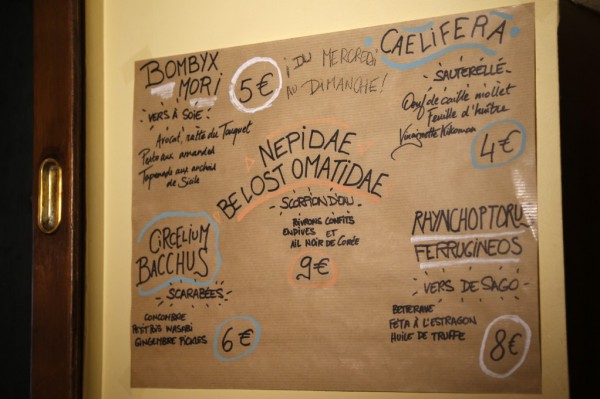 BOMBYX
MORI
5€
¡ DU MERCREDI
AU DIMANCHE!
VERS À SOIE
Avocat, ratte du Touquet
Pesto aux amandes
Tapenade aux anchois
de Sicile
CAELIFERA
SAUTERELLE
Oeuf de caille mollet
Feuille d'huître
Vinaigrette Kikkoman
4€
NEPIDAE
BELOSTOMATIDAE
SCORPION D'EAU
POIVRONS CONFITS
ENDIVES ET
AIL NOIR DE CORÉE
9€
CIRCELIUM
BACCHUS
SCARABÉES
CONCOMBRE
PETIT POIS WASABI
GINGEMBRE PICKLES
6€
RHYNCHOPTORU
FERRUGINEOS
VERS DE SAGO
BETTERAVE
FETA À L'ESTRAGON
HUILE DE TRUFFE
8€